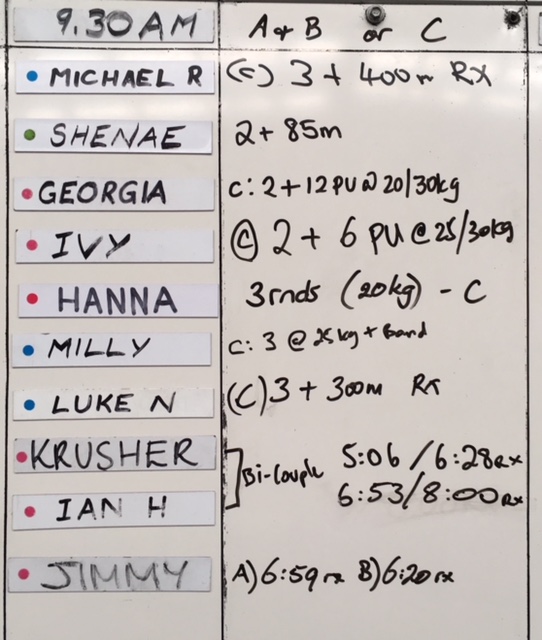 9.30AM A + B or C
MICHAEL R (C) 3 + 400m RX
SHENAE 2 + 85m
GEORGIA C: 2 + 12 PU @ 20/30kg
IVY (C) 2 + 6 PU @ 25/30kg
HANNA 3rnds (20kg) - C
MILLY C: 3 @ 25kg + Band
LUKE N (C) 3 + 300m RX
KRUSHER Bi-Couple 5:06 / 6:28 RX
IAN H 6:53/8:00 RX
JIMMY A) 6:59 rx B) 6:20 rx